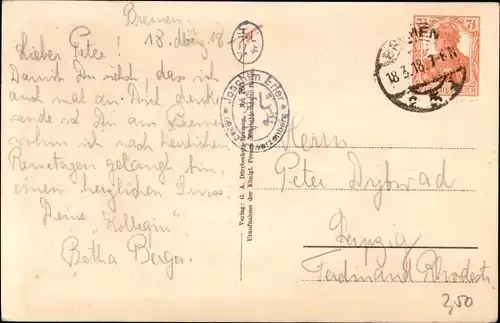 Bremen.
18. März 18.
Lieber Peter!
Damit Du siehst, dass ich
auch mal an Dich denke
sende ich Dir aus Bremen
wohin ich nach herrlichen
Reisetagen gelangt bin,
einen herzlichen Gruss.
Deine "Kollegin"
Berger.
Verlag: G. A. Dörrbecker, Bremen.
Joachim Erler
BREMEN
18.3.18.7-8N
7½ 7½
Herrn
Peter Dybwad
Leipzig
Ferdinand Rhodestr
2,50